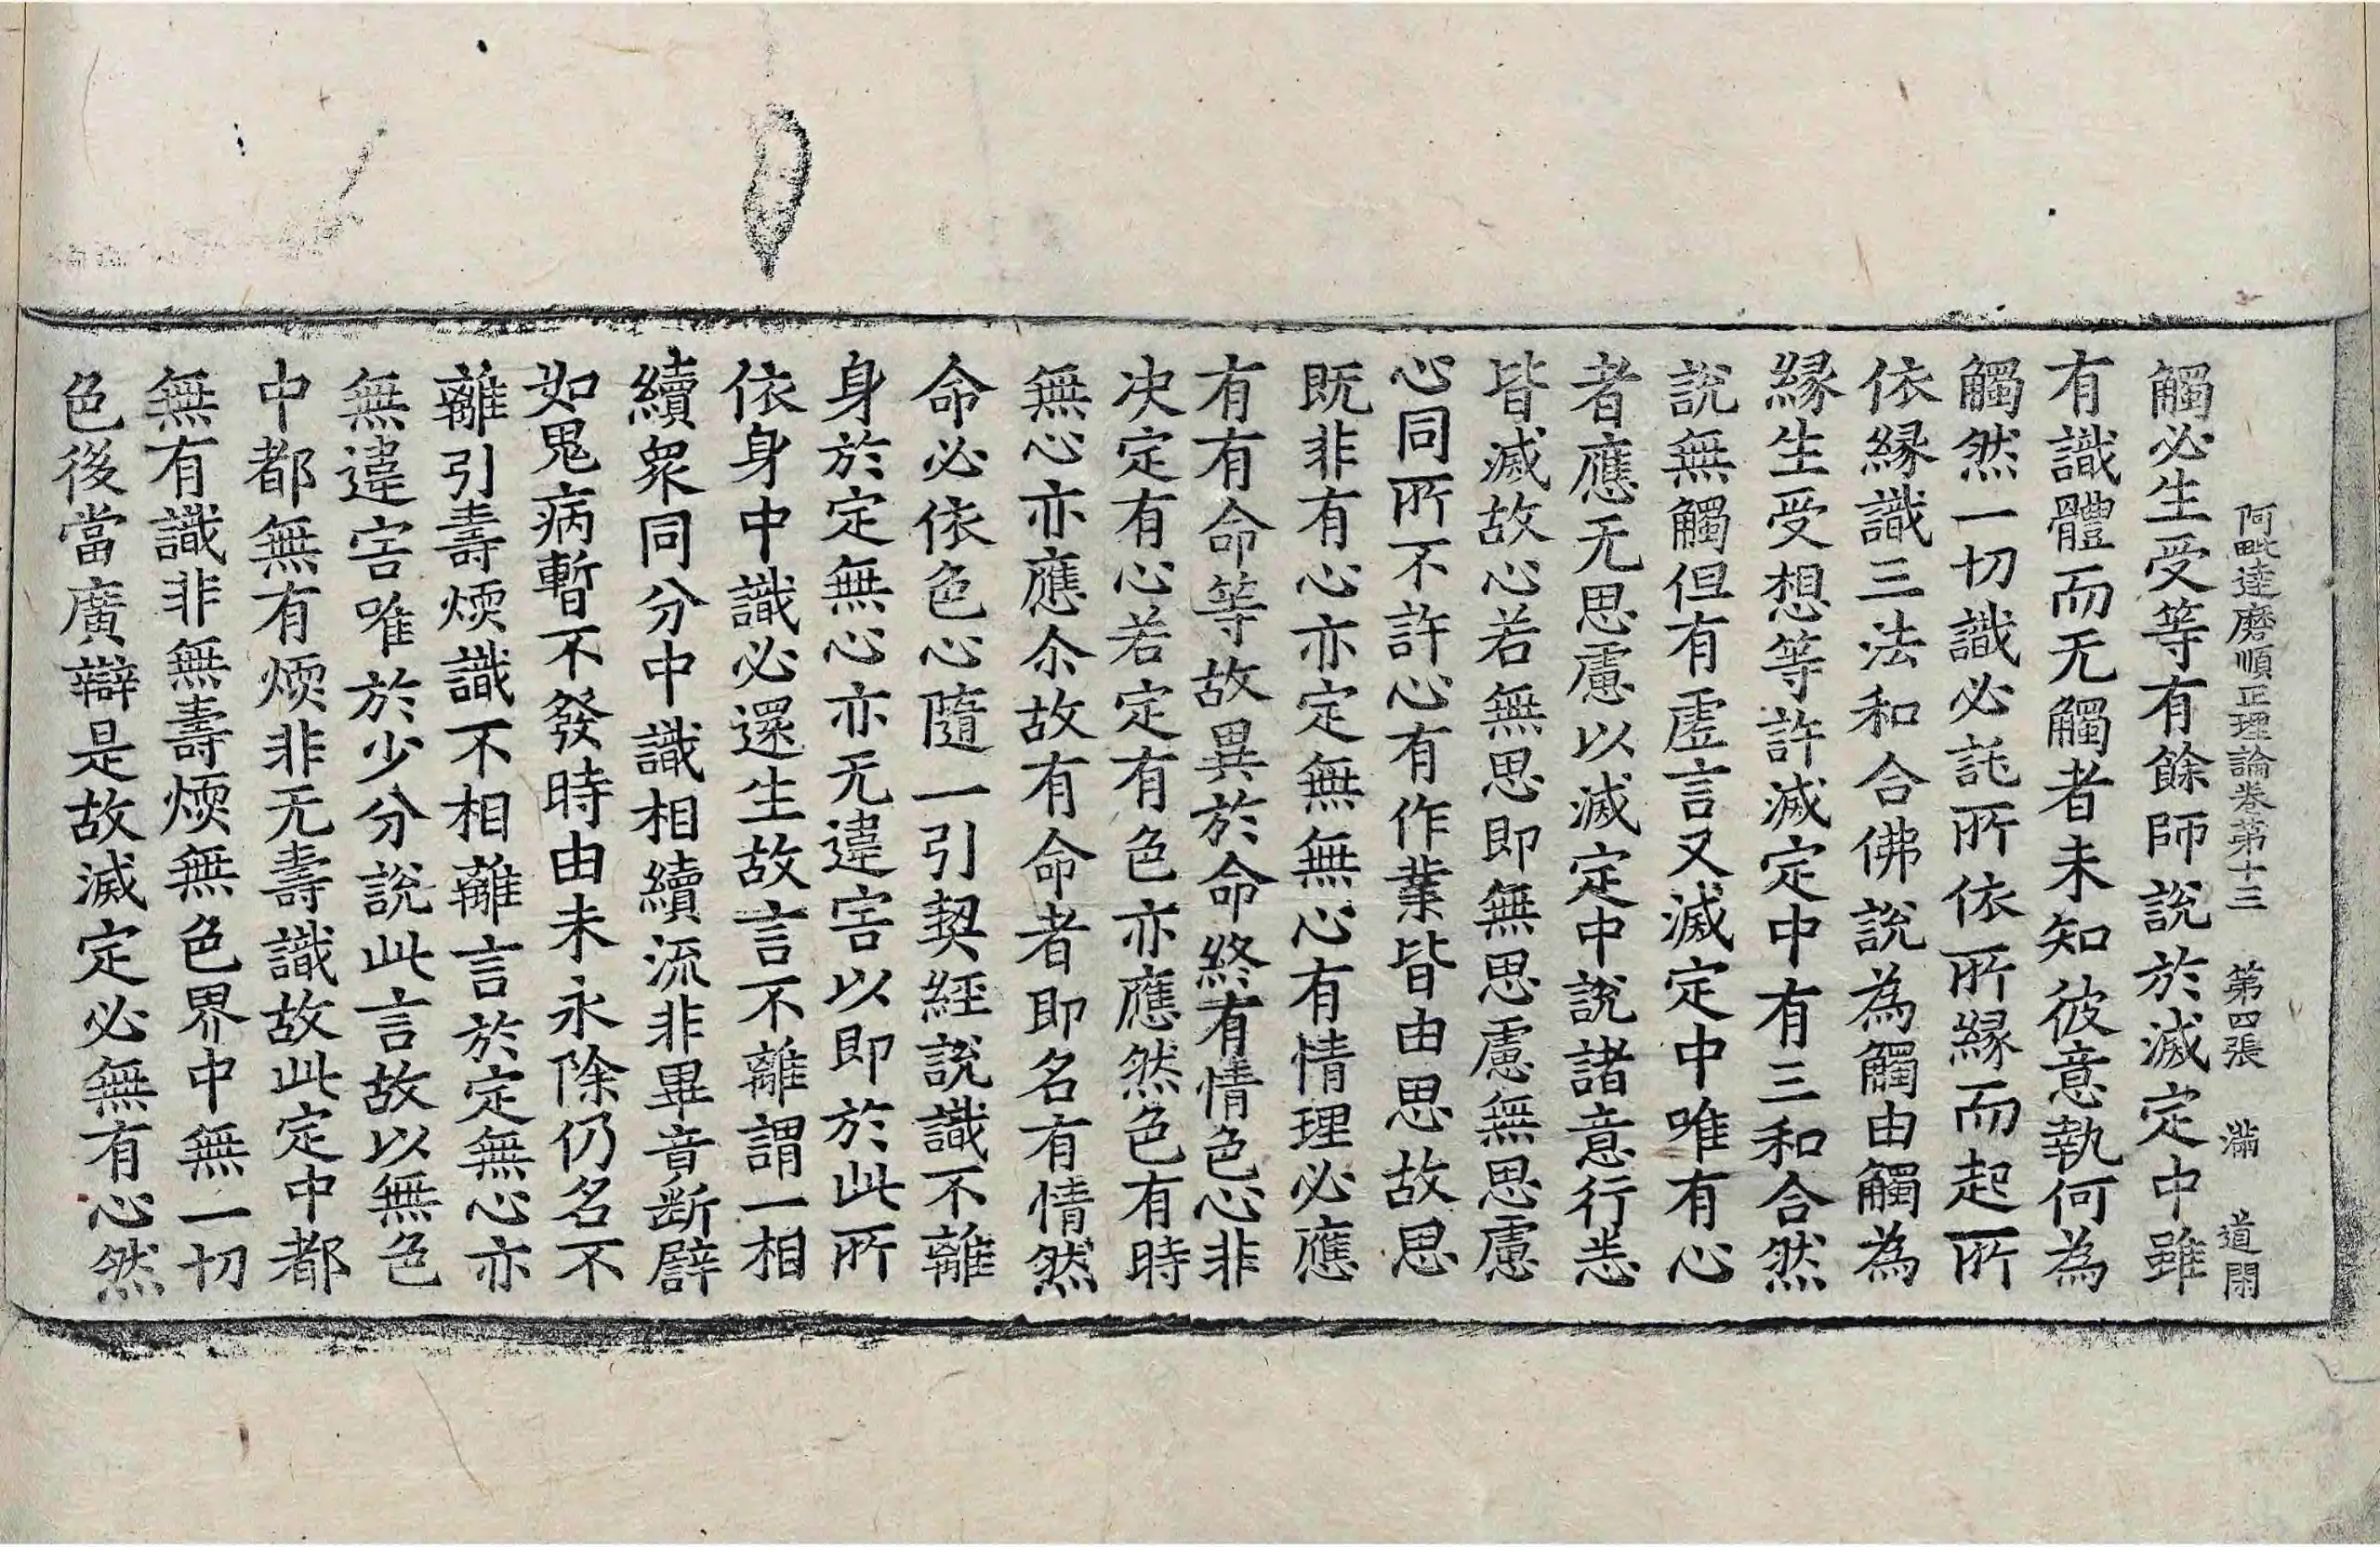 阿毗達磨順正理論卷第十三　第四張　滿　道開
觸必生受等有餘師說於滅定中雖
有識體而无觸者未知彼意執何為
觸然一切識必託所依所緣而起所
依緣識三法和合佛說為觸由觸為
緣生受想等許滅定中有三和合然
說無觸但有虛言又滅定中唯有心
者應无思慮以滅定中說諸意行悉
皆滅故心若無思即無思慮無思慮
心同所不許心有作業皆由思故思
既非有心亦定無無心有情理必應
有有命等故異於命終有情色心非
决定有心若定有色亦應然色有時
無心亦應尒故有命者即名有情然
命必依色心隨一引契經說識不離
身於定無心亦无違害以即於此所
依身中識必還生故言不離謂一相
續衆同分中識相續流非畢竟断辟
如鬼病暫不發時由未永除仍名不
離引壽煗識不相離言於定無心亦
無違害唯於少分說此言故以無色
中都無有煗非无壽識故此定中都
無有識非無壽煗無色界中無一切
色後當廣辯是故滅定必無有心然